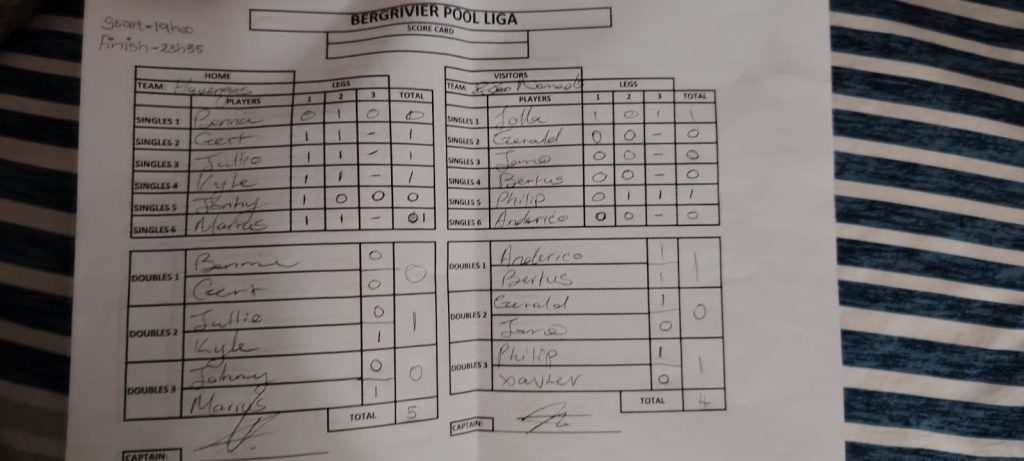 Start-19h00
Finish-23h35
BERGRIVIER POOL LIGA
SCORE CARD
HOME
TEAM:
LEGS
PLAYERS 1 2 3 TOTAL
SINGLES 1 Bennie 0 1 0 0
SINGLES 2 Gert 1 1 - 1
SINGLES 3 Jullio 1 1 - 1
SINGLES 4 Kyle 1 1 - 1
SINGLES 5 Johny 1 0 0 0
SINGLES 6 Marius 1 1 - 01
DOUBLES 1 Bennie 0 0
Gert 0
DOUBLES 2 Jullio 0 1
Kyle 1
DOUBLES 3 Johnny 0 0
Marius 1
TOTAL 5
CAPTAIN:
VISITORS
TEAM:
LEGS
PLAYERS 1 2 3 TOTAL
SINGLES 1 1 0 1 1
SINGLES 2 Gerald 0 0 - 0
SINGLES 3 Jano 0 0 - 0
SINGLES 4 Bertus 0 0 - 0
SINGLES 5 Philip 0 1 1 1
SINGLES 6 Anderico 0 0 - 0
DOUBLES 1 Anderico 1 1
Bertus 1
DOUBLES 2 Gerald 1 0
Jano 0
DOUBLES 3 Philip 1 1
Xavier 0
TOTAL 4
CAPTAIN: